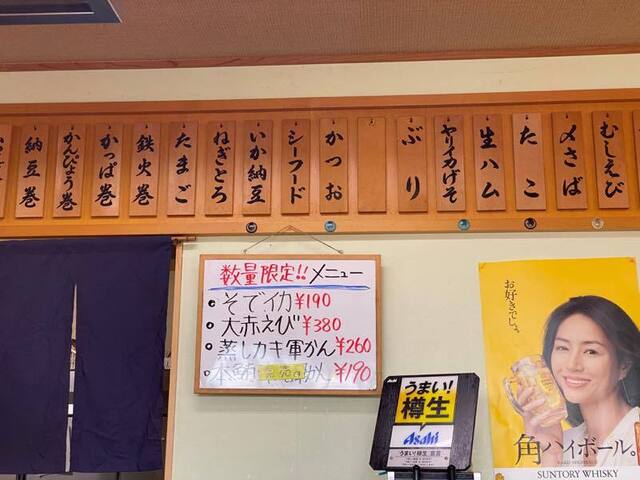 むしえび
〆さば
たこ
生ハム
ヤリイカげそ
ぶり
かつお
シーフード
いか納豆
ねぎとろ
たまご
鉄火巻
かっぱ巻
かんぴょう巻
納豆巻
数量限定!!メニュー
・そでイカ¥190
・大赤えび¥380
・蒸しカキ軍かん¥260
¥190
Asahi
うまい!
樽生
Asahi
うまい!樽生
お好きでしょ。
角ハイボール。
SUNTORY WHISKY